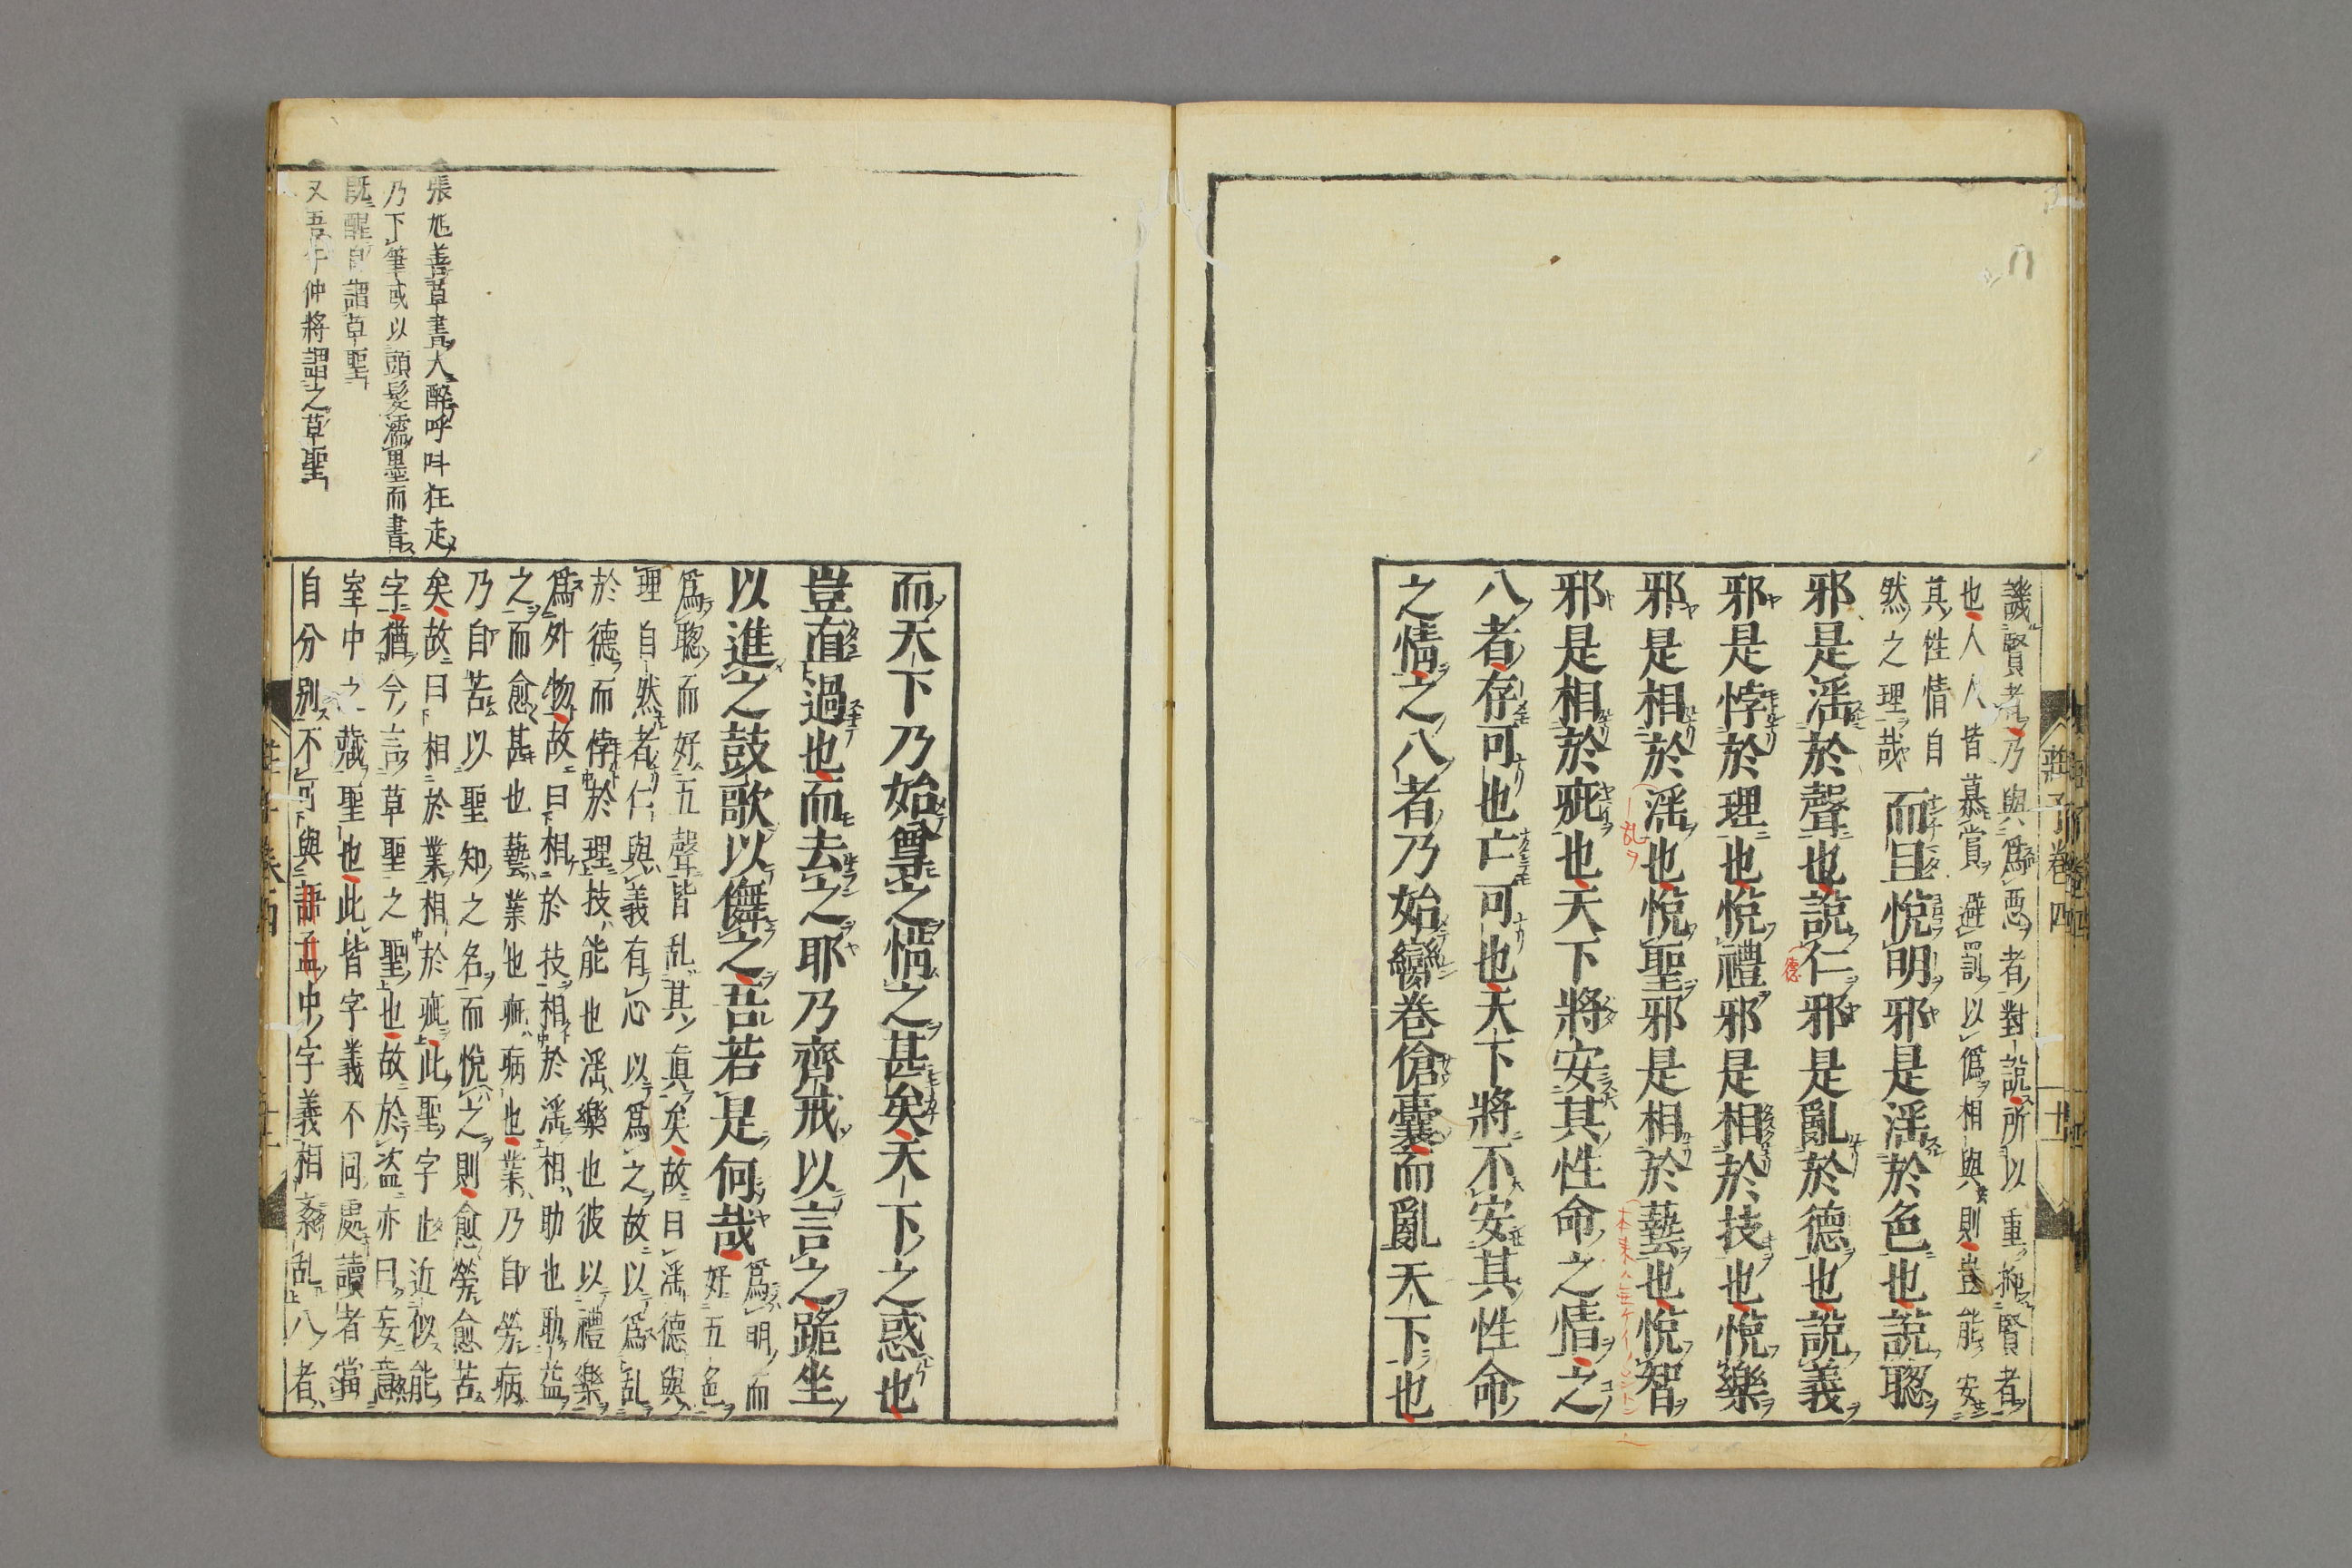 莊子卷四
十一
譏賢者乃與爲惡者對說所以重抑賢者
也人人皆慕賞避罰以僞相與則豈能安
其性情自
然之理哉
而且悅明邪是淫於色也說聰
邪是淫於聲也說仁邪是亂於德也說義
邪是悖於理也悅禮邪是相於技也悅樂
邪是相於淫也悅聖邪是相於藝也悅智
邪是相於疵也天下將安其性命之情之
八者存可也亡可也天下將不安其性命
之情之八者乃始臠卷傖囊而亂天下也
德
乱ヲ
而天下乃始尊之惜之甚矣天下之惑也
豈直過也而去之耶乃齊戒以言之跪坐
以進之鼓歌以儛之吾若是何哉
爲明而
好五色
爲聰而好五聲皆乱其眞矣故曰淫德與
理自然者仁與義有心以爲之故以爲乱
於德而悖於理技能也淫樂也彼以禮樂
爲外物故曰相於技相於淫相助也助益
之而愈甚也藝業也疵病也業乃自勞病
乃自苦以聖知之名而悅之則愈勞愈苦
矣故曰相於業相於疵此聖字止近似能
字猶今言草聖之聖也故於盜亦曰妄意
室中之藏聖也此皆字義不同處讀者當
自分別不可與語孟中字義相紊乱八者
張旭善草書大醉呼叫狂走
乃下筆或以頭髮濡墨而書
既醒自謂草聖
又吾仲將謂之草聖